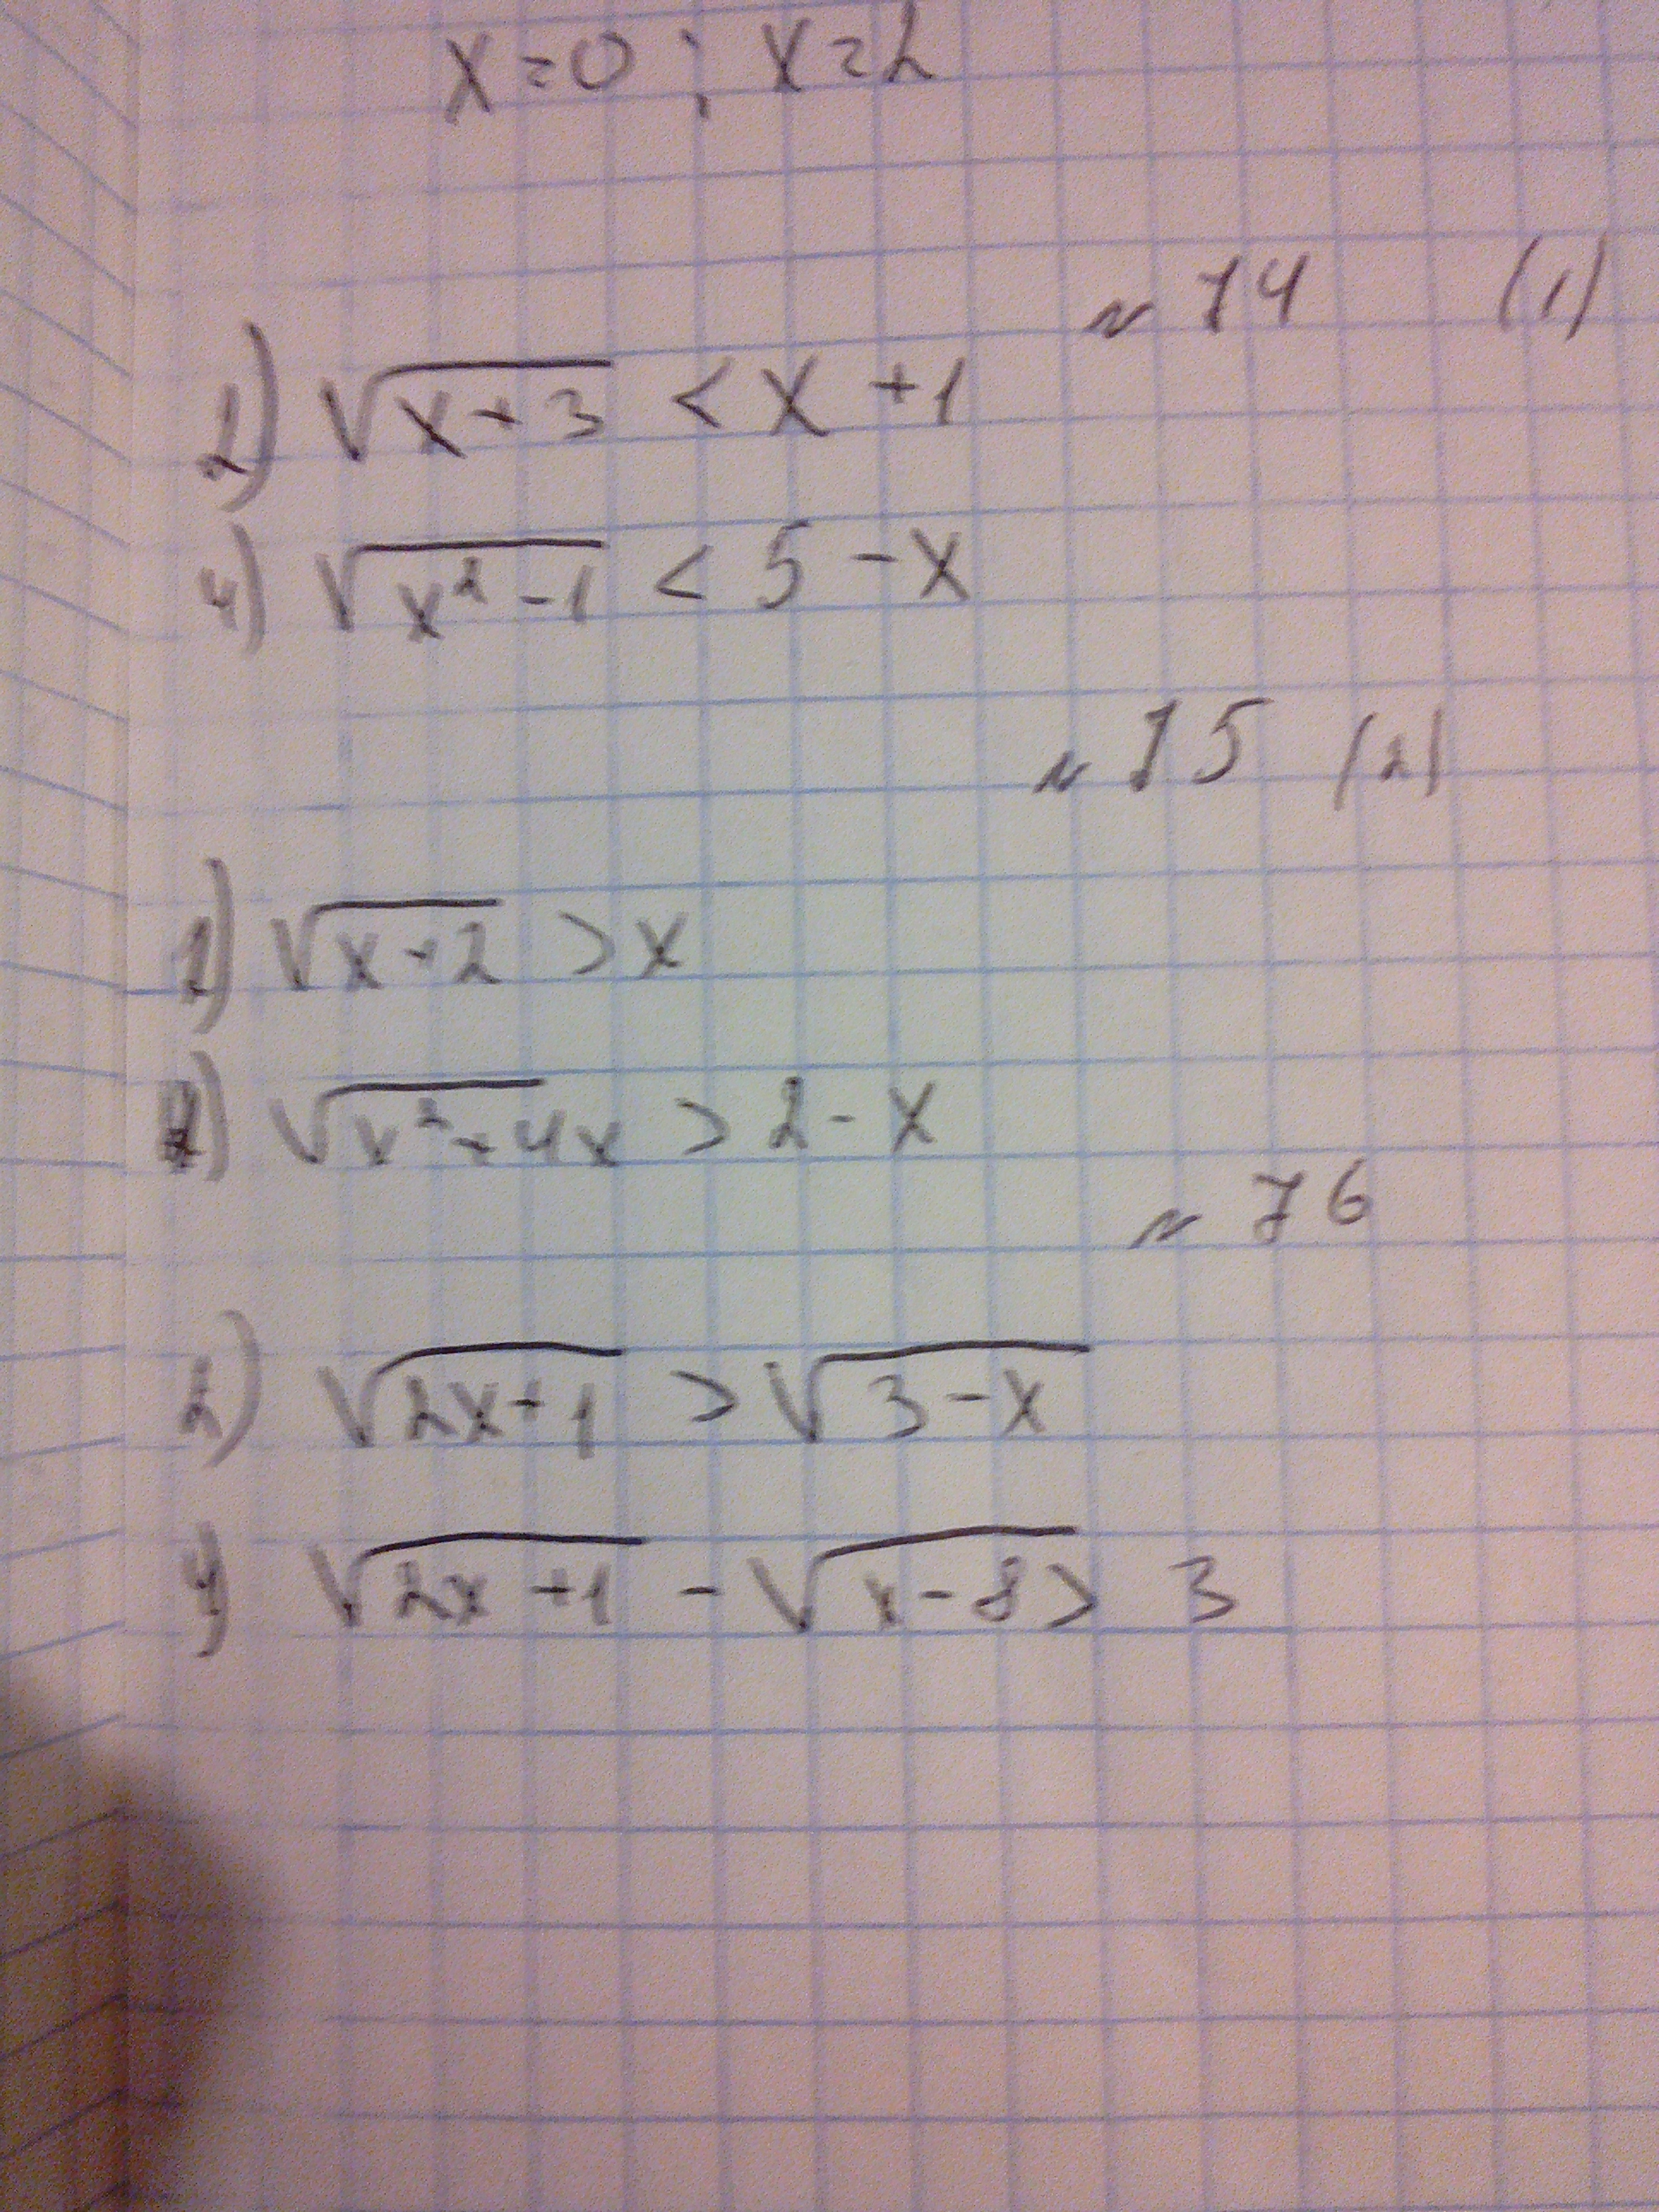 x=0 ; x=2
№ 74 (1)
2) √(x+3) < x+1
4) √(x²-1) < 5-x
№ 75 (2)
2) √(x+2) > x
4) √(x²+4x) > 2-x
№ 76
2) √(2x+1) > √(3-x)
4) √(2x+1) - √(x-8) > 3